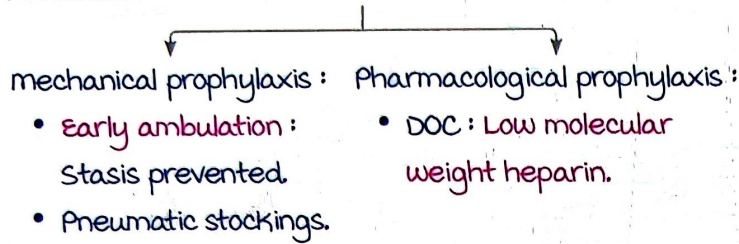 mechanical prophylaxis :
• Early ambulation :
Stasis prevented.
• Pneumatic stockings.
Pharmacological prophylaxis :
• DOC : Low molecular
weight heparin.